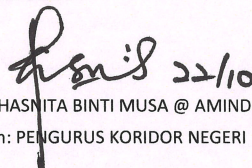 22/10
HASNITA BINTI MUSA @ AMIND
n: PENGURUS KORIDOR NEGERI